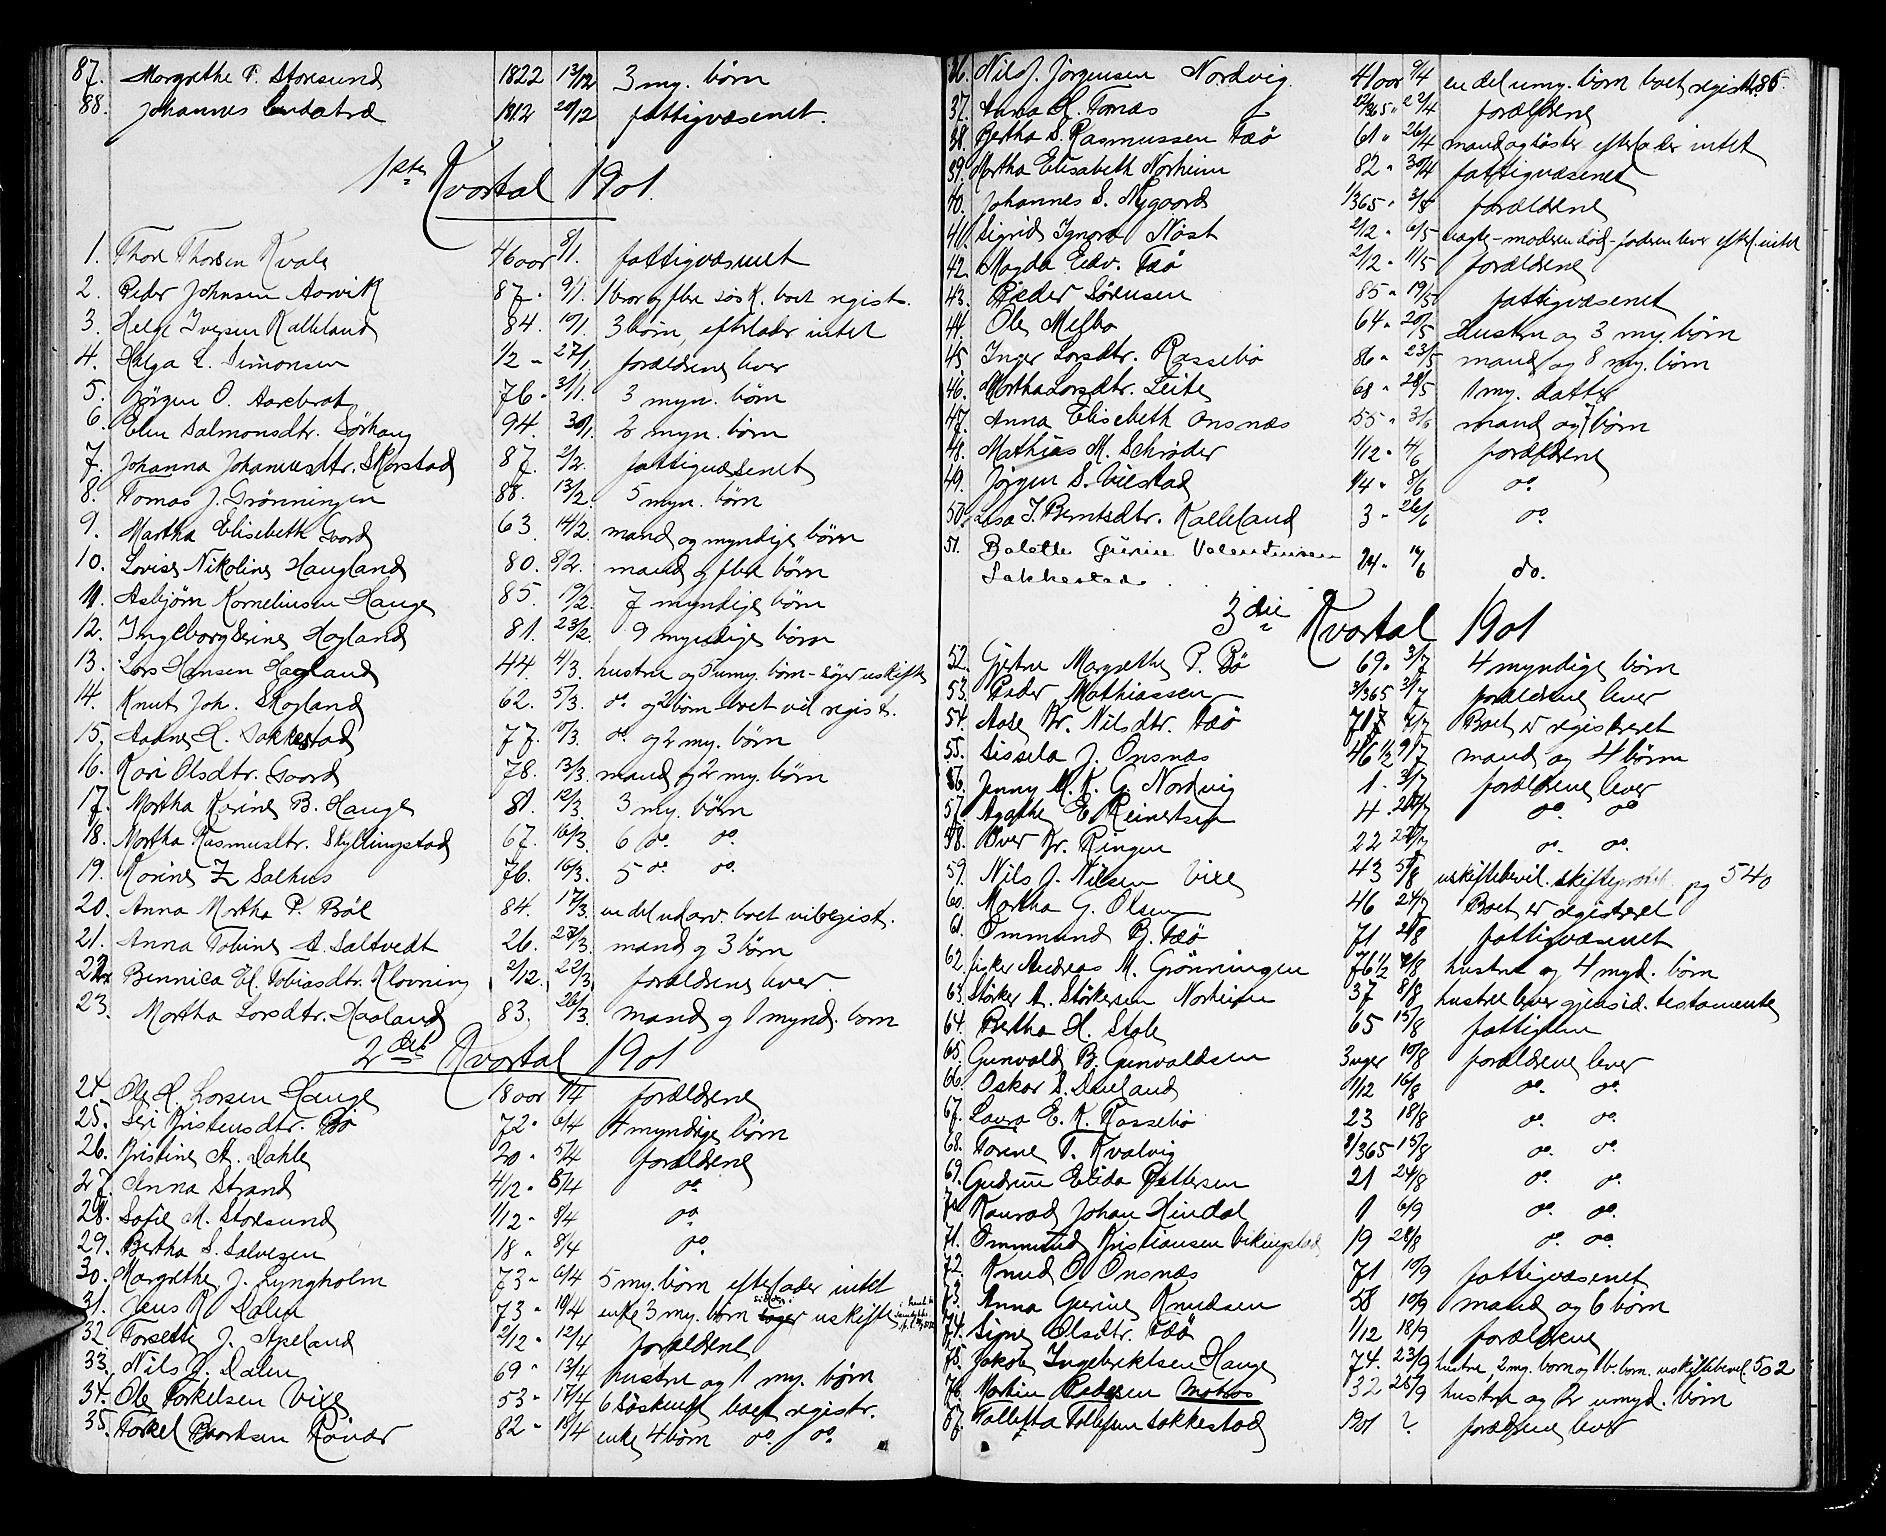 87. Margrethe P. Storesund 1822 13/12 3 my. børn
88. Johannes 1812 20/12 fattigvæsenet.
1ste Kvartal 1901.
1. Thore Thorsen Kvale 46 aar 8/1. fattigvæsenet
2. Peder Johnsen Aarvik 87. 9/1. 1 bror og flere søsk. boet regist.
3. Helge Iversen Kalleland 84. 19/1. 3 børn, efterlader intet
4. Helga L. Simonsen 1/2 " 27/1. forældrene lever
5. Jørgen O. Aarebrot 76. 31/1. 3 myn. børn
6. Elen Salmonsdtr. Sørhaug 94. 30/1. 2 myn. børn
7. Johanna Johannesdtr. Skorstad 87. 2/2. fattigvæsenet
8. Tomas J. Grønningen 88. 13/2. 5 myn. børn
9. Martha Elisabeth Gaard 63. 14/2. mand og myndige børn
10. Lovise Nikoline Haugland 80. 8/2. mand og flere børn
11. Asbjørn Korneliussen Hauge 85. 19/2. 7 myndige børn
12. Ingeborg Serine Hogland 81. 23/2. 9 myndige børn
13. Lars Hansen Hagland 44. 4/3. hustru og 5 umy. børn - søger uskifte
14. Knut Joh. Skogland 62. 5/3. do og 2 børn boet vil regist.
15. Aadne H. Sakkestad 77. 10/3. do og 2 my. børn
16. Kari Olsdtr. Gaard 78. 13/3. mand og 2 my. børn
17. Martha Karine B. Hauge 81. 12/3. 3 my. børn
18. Martha Rasmusdtr. Skyllingstad 67. 16/3. 6 do do.
19. Karine Z Salhus 76. 16/3. 5 do do.
20. Anna Martha P. Bøe 84. 17/3. en del udarv. boet vil regist.
21. Anna Tobine A. Saltvedt 26. 27/3. mand og 3 børn
22. Bennica El. Tobiasdtr. Kløvning 2/12. 22/3. forældrene lever.
23. Martha Larsdtr. Haaland 83. 26/3. mand og 1 mynd. barn
2det Kvartal 1901
24. Ole H. Larsen Hauge 18 aar 1/4 forældrene
25. Siri Kristensdtr. Bø 72 " 6/4 4 myndige børn
26. Kristine A. Dahle 20 " 5/4 forældrene
27. Anna Strand 4/12 " 8/4 do
28. Sofie M. Storesund 1/12 " 8/4 do
29. Bertha S. Salvesen 18 " 8/4 do.
30. Margrethe J. Lyngholm 73 " 6/4 5 my. børn efterlader intet
31. Jens K. Dalen 73 " 10/4 enke 3 my. børn søger uskifte
32. Torsette J. Apeland 2/12 " 12/4 forældrene
33. Nils J. Dalen 69 " 13/4 hustru og 1 my. børn
34. Ole Torkelsen Vixe 53 " 17/4 6 søskend boet registr.
35. Torkel Baardsen Røvær 82 " 18/4 enke 4 børn do. do.
36. Nils J. Jørgensen Nordvig. 41 aar 9/4 en del umy. børn boet registr. 86.
37. Anna H. Tomas 22/4 forældrene
38. Bertha S. Rasmussen Fæø 61 " 26/4 mand og søster efterlader intet
39. Martha Elisabeth Norheim 82 " 30/4 fattigvæsenet
40. Johannes S. Nygaard 1/365 " 3/5 forældrene
41. Sigrid Ignora Nøst 2/12 " 6/5 uægte - moderen død - faderen lever efterl. intet
42. Magda Edv. Fæø 2/12 " 11/5 forældrene
43. Peder Sørensen 85 " 19/5 fattigvæsenet
44. Ole Melbø 64 " 20/5 hustru og 3 my. børn
45. Inger Larsdtr. Rossebø 86 " 23/5 mand og 8 my. børn
46. Martha Larsdtr. Leite 68 " 28/5 1 my. datter
47. Anna Elisebeth Onsnæs 55 " 3/6 mand og 7 børn
48. Mathias M. Schrøder 1/12 " 4/6 forældrene
49. Jørgen S. Vilstad 1/4 " 8/6 do.
50. Lisa J. Berntsdtr. Kalleland 3 " 26/6 do.
51. Balette Gurine Valentinsen
Sakkestad. 24. 14/6 do.
3die Kvartal 1901
52. Gjertru Margrethe P. Bø 69. 3/7 4 myndige børn
53. Peder Mathiassen 3/365 3/7 forældrene lever
54. Aase Kr. Nilsdtr. Fæø 71 4/7 Boet er registreret
55. Sissela J. Onsnæs 46 1/2 9/7 mand og 4 børn
56. Jenny M. K. G. Nordvig 1. 3/7 forældrene lever
57. Agathe E Reinertsen 4. do. do
58. Iver Kr. Ringen 22 do. do.
59. Nils J. Nilsen Vixe 43 5/8 uskiftebevil. skifteprotok. pg 540
60. Martha G. Olsen 46 24/7 Boet er registreret
61. Ommund B. Fæø 71 2/8 fattigvæsenet
62. fisker Andreas M. Grønningen 76 1/2 4/8 hustru og 4 myd. børn
63. Størker A. Størkersen Norheim 37 8/8 hustru lever gjensid. testamente
64. Bertha H. Stole 65 15/8 fattiglem
65. Gunvald B. Gunvaldsen 3 uger 10/8 forældrene lever
66. Oskar S. Aueland 1/12 16/8 do. do.
67. Laura E. K. Rossebø 23 18/8 do. do.
68. Torine T. Kvalvig 8/365 15/8 do. do.
69. Gudrun Elida Pettersen 21 24/8 do. do.
70. Konrad Johan Hindal 1 6/9 do. do.
71. Ommund Kristiansen Vikingstad 19 28/8 do. do.
72. Knud O. Onsnæs 71 10/9 fattigvæsenet
73. Anna Gurine Knudsen 58 10/9 mand og 6 børn
74. Signe Olsdtr. Fæø 1/12 18/9 forældrene
75. Jakob Ingebrektsen Hauge 74. 23/9 hustru, 2 my. børn og 1 b. barn. uskiftebevil. 502
76. Martin Pedersen Matros 32 25/9 hustru og 2 umynd. børn
87. Tollefta Tollefsen Sakkestad 1901 ? forældrene lever